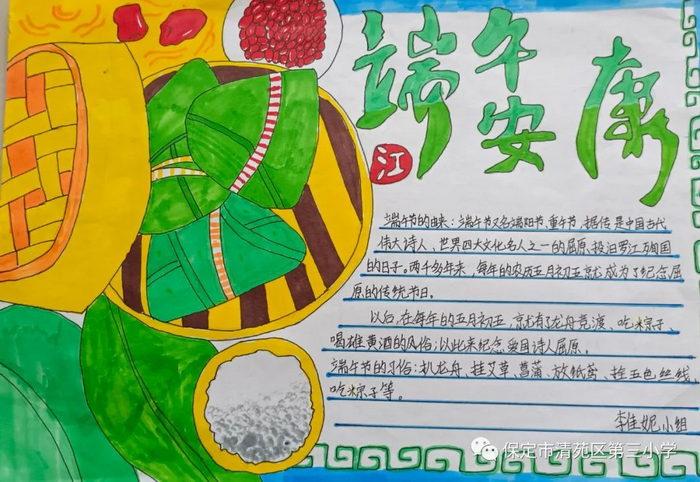 端午安康
江
端午节的由来:端午节又名端阳节、重午节,据传是中国古代
伟大诗人、世界四大文化名人之一的屈原,投汨罗江殉国
的日子。两千多年来,每年的农历五月初五就成为了纪念屈
原的传统节日。
以后,在每年的五月初五,就有了龙舟竞渡、吃粽子、
喝雄黄酒的风俗;以此来纪念爱国诗人屈原。
端午节的习俗:扒龙舟、挂艾草、菖蒲、放纸鸢、拴五色丝线、
吃粽子等。
李佳妮小组
保定市清苑区第三小学